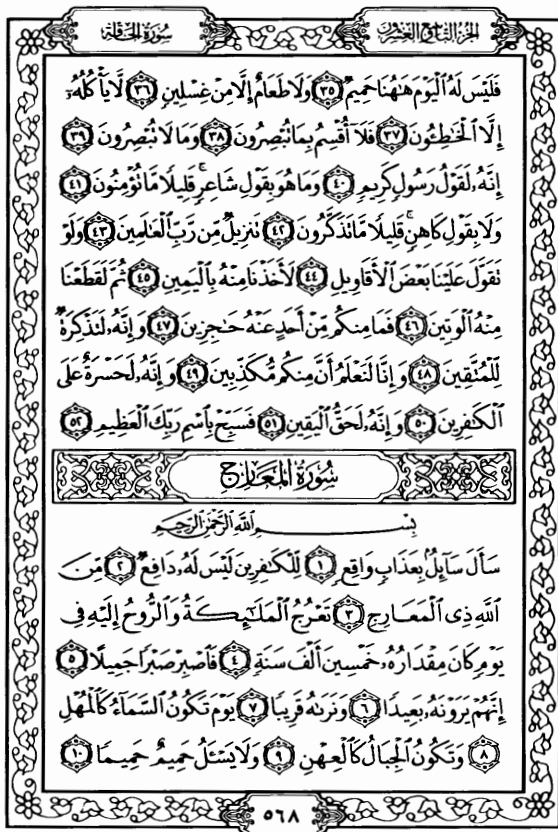 سُورَةُ الحَاقَّةِ
الجُزْءُ التَّاسِعُ وَالعِشْرُونَ
فَلَيْسَ لَهُ ٱلْيَوْمَ هَـٰهُنَا حَمِيمٌ ٣٥ وَلَا طَعَامٌ إِلَّا مِنْ غِسْلِينٍ ٣٦ لَّا يَأْكُلُهُۥٓ
إِلَّا ٱلْخَـٰطِـُٔونَ ٣٧ فَلَآ أُقْسِمُ بِمَا تُبْصِرُونَ ٣٨ وَمَا لَا تُبْصِرُونَ ٣٩
إِنَّهُۥ لَقَوْلُ رَسُولٍ كَرِيمٍ ٤٠ وَمَا هُوَ بِقَوْلِ شَاعِرٍ ۚ قَلِيلًا مَّا تُؤْمِنُونَ ٤١
وَلَا بِقَوْلِ كَاهِنٍ ۚ قَلِيلًا مَّا تَذَكَّرُونَ ٤٢ تَنزِيلٌ مِّن رَّبِّ ٱلْعَـٰلَمِينَ ٤٣ وَلَوْ
تَقَوَّلَ عَلَيْنَا بَعْضَ ٱلْأَقَاوِيلِ ٤٤ لَأَخَذْنَا مِنْهُ بِٱلْيَمِينِ ٤٥ ثُمَّ لَقَطَعْنَا
مِنْهُ ٱلْوَتِينَ ٤٦ فَمَا مِنكُم مِّنْ أَحَدٍ عَنْهُ حَـٰجِزِينَ ٤٧ وَإِنَّهُۥ لَتَذْكِرَةٌ
لِّلْمُتَّقِينَ ٤٨ وَإِنَّا لَنَعْلَمُ أَنَّ مِنكُم مُّكَذِّبِينَ ٤٩ وَإِنَّهُۥ لَحَسْرَةٌ عَلَى
ٱلْكَـٰفِرِينَ ٥٠ وَإِنَّهُۥ لَحَقُّ ٱلْيَقِينِ ٥١ فَسَبِّحْ بِٱسْمِ رَبِّكَ ٱلْعَظِيمِ ٥٢
سُورَةُ المَعَارِجِ
بِسْمِ ٱللَّهِ ٱلرَّحْمَـٰنِ ٱلرَّحِيمِ
سَأَلَ سَآئِلٌۢ بِعَذَابٍ وَاقِعٍ ١ لِّلْكَـٰفِرِينَ لَيْسَ لَهُۥ دَافِعٌ ٢ مِّنَ
ٱللَّهِ ذِى ٱلْمَعَارِجِ ٣ تَعْرُجُ ٱلْمَلَـٰٓئِكَةُ وَٱلرُّوحُ إِلَيْهِ فِى
يَوْمٍ كَانَ مِقْدَارُهُۥ خَمْسِينَ أَلْفَ سَنَةٍ ٤ فَٱصْبِرْ صَبْرًا جَمِيلًا ٥
إِنَّهُمْ يَرَوْنَهُۥ بَعِيدًا ٦ وَنَرَىٰهُ قَرِيبًا ٧ يَوْمَ تَكُونُ ٱلسَّمَآءُ كَٱلْمُهْلِ
٨ وَتَكُونُ ٱلْجِبَالُ كَٱلْعِهْنِ ٩ وَلَا يَسْـَٔلُ حَمِيمٌ حَمِيمًا ١٠
٥٦٨